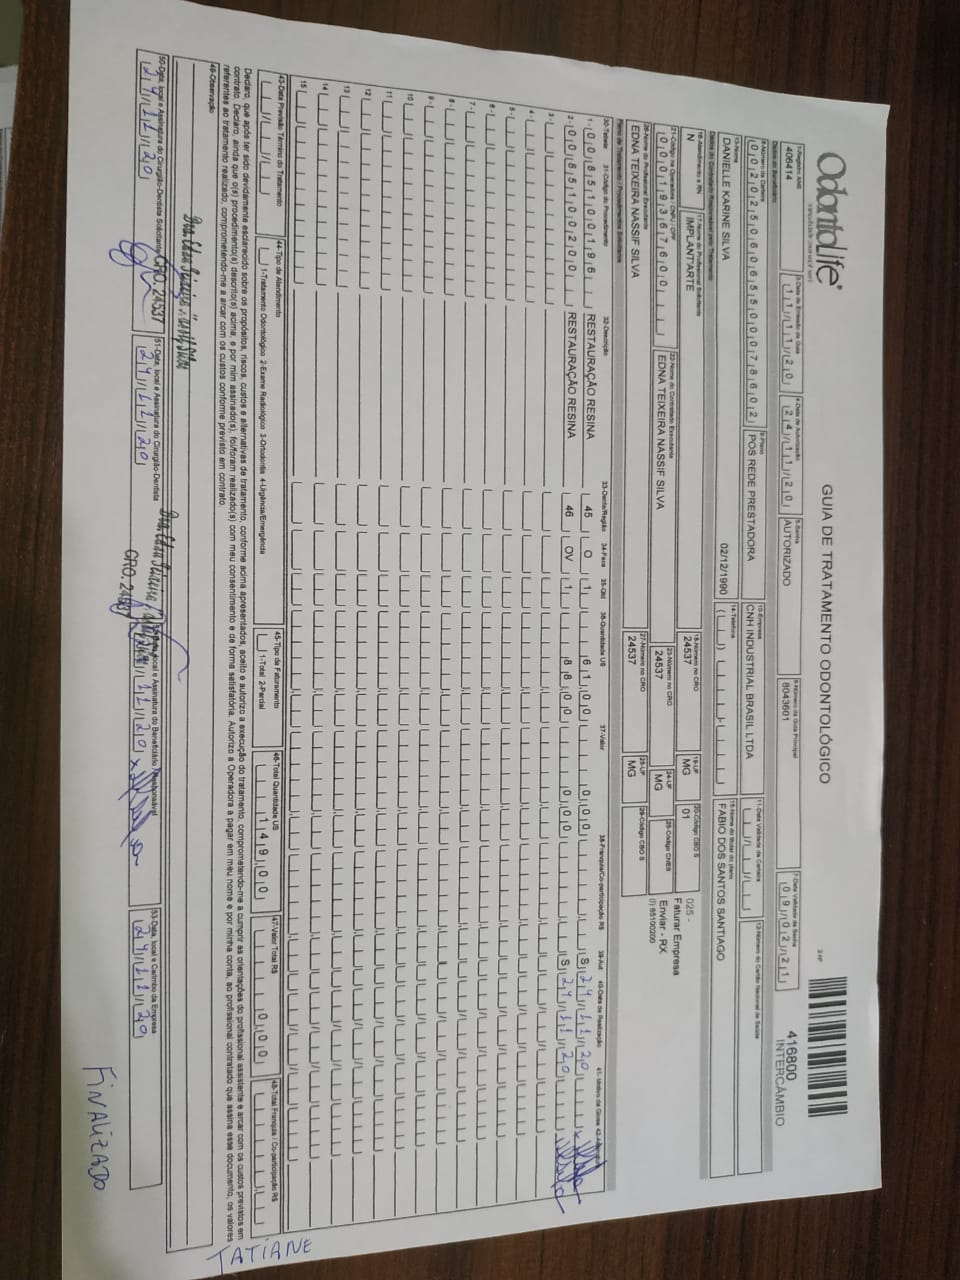 OdontoLife®
GUIA DE TRATAMENTO ODONTOLÓGICO
416800
INTERCÂMBIO
1-Registro ANS
406414
3-Data de Emissão da Guia
11/11/20
4-Data de Autorização
24/11/20
5-Senha
AUTORIZADO
6-Número da Guia Principal
8043601
7-Data Validade da Senha
09/02/21
8-Número da Carteira
00202506065500078602
9-Plano
POS REDE PRESTADORA
10-Empresa
CNH INDUSTRIAL BRASIL LTDA
11-Data Validade da Carteira
12-Número do Cartão Nacional de Saúde
13-Nome
DANIELLE KARINE SILVA
02/12/1990
14-Telefone
15-Nome do titular do plano
FABIO DOS SANTOS SANTIAGO
16-Atendimento a RN
N
17-Nome do Profissional Solicitante
IMPLANTARTE
18-Número no CRO
24537
19-UF
MG
20-Código CBO S
01
025 -
Faturar Empresa
Enviar - RX
(I) 85100200
22-Nome do Contratado Executante
EDNA TEIXEIRA NASSIF SILVA
23-Número no CRO
24537
24-UF
MG
25-Código CNES
26-Nome do Profissional Executante
EDNA TEIXEIRA NASSIF SILVA
27-Número no CRO
24537
28-UF
MG
29-Código CBO S
30-Tabela 31-Código do Procedimento 32-Descrição 33-Dente/Região 34-Face 35-Qtd 36-Quantidade US 37-Valor 38-Franquia/Co-participação R$ 39-Aut 40-Data de Realização
1- 00 85100196 RESTAURAÇÃO RESINA 45 O 1 61,00 0,00 S 24/11/20
2- 00 85100200 RESTAURAÇÃO RESINA 46 OV 1 88,00 0,00 S 24/11/20
3-
4-
5-
6-
7-
8-
9-
10
11
12
13
14
15
43-Data Previsão Término do Tratamento
44-Tipo de Atendimento
1-Tratamento Odontológico 2-Exame Radiológico 3-Ortodontia 4-Urgência/Emergência
45-Tipo de Faturamento
1-Total 2-Parcial
46-Total Quantidade US
149,00
47-Valor Total R$
0,00
48-Total Franquia / Co-participação R$
Declaro, que após ter sido devidamente esclarecido sobre os propósitos, riscos, custos e alternativas de tratamento, conforme acima apresentados, aceito e autorizo a execução do tratamento, comprometendo-me a cumprir as orientações do profissional assistente e arcar com os custos previstos em
contrato. Declaro, ainda que o(s) procedimento(s) descrito(s) acima, e por mim assinado(s), foi/foram realizado(s) com meu consentimento e de forma satisfatória. Autorizo a Operadora a pagar em meu nome e por minha conta, ao profissional contratado que assina esse documento, os valores
referentes ao tratamento realizado, comprometendo-me a arcar com os custos conforme previsto em contrato.
49-Observação
TATIANE
50-Data, local e Assinatura do Cirurgião-Dentista Solicitante
24/11/20
CRO. 24537
51-Data, local e Assinatura do Cirurgião-Dentista
24/11/20
CRO. 24537
53-Data, local e Carimbo da Empresa
24/11/20
FINALIZADO